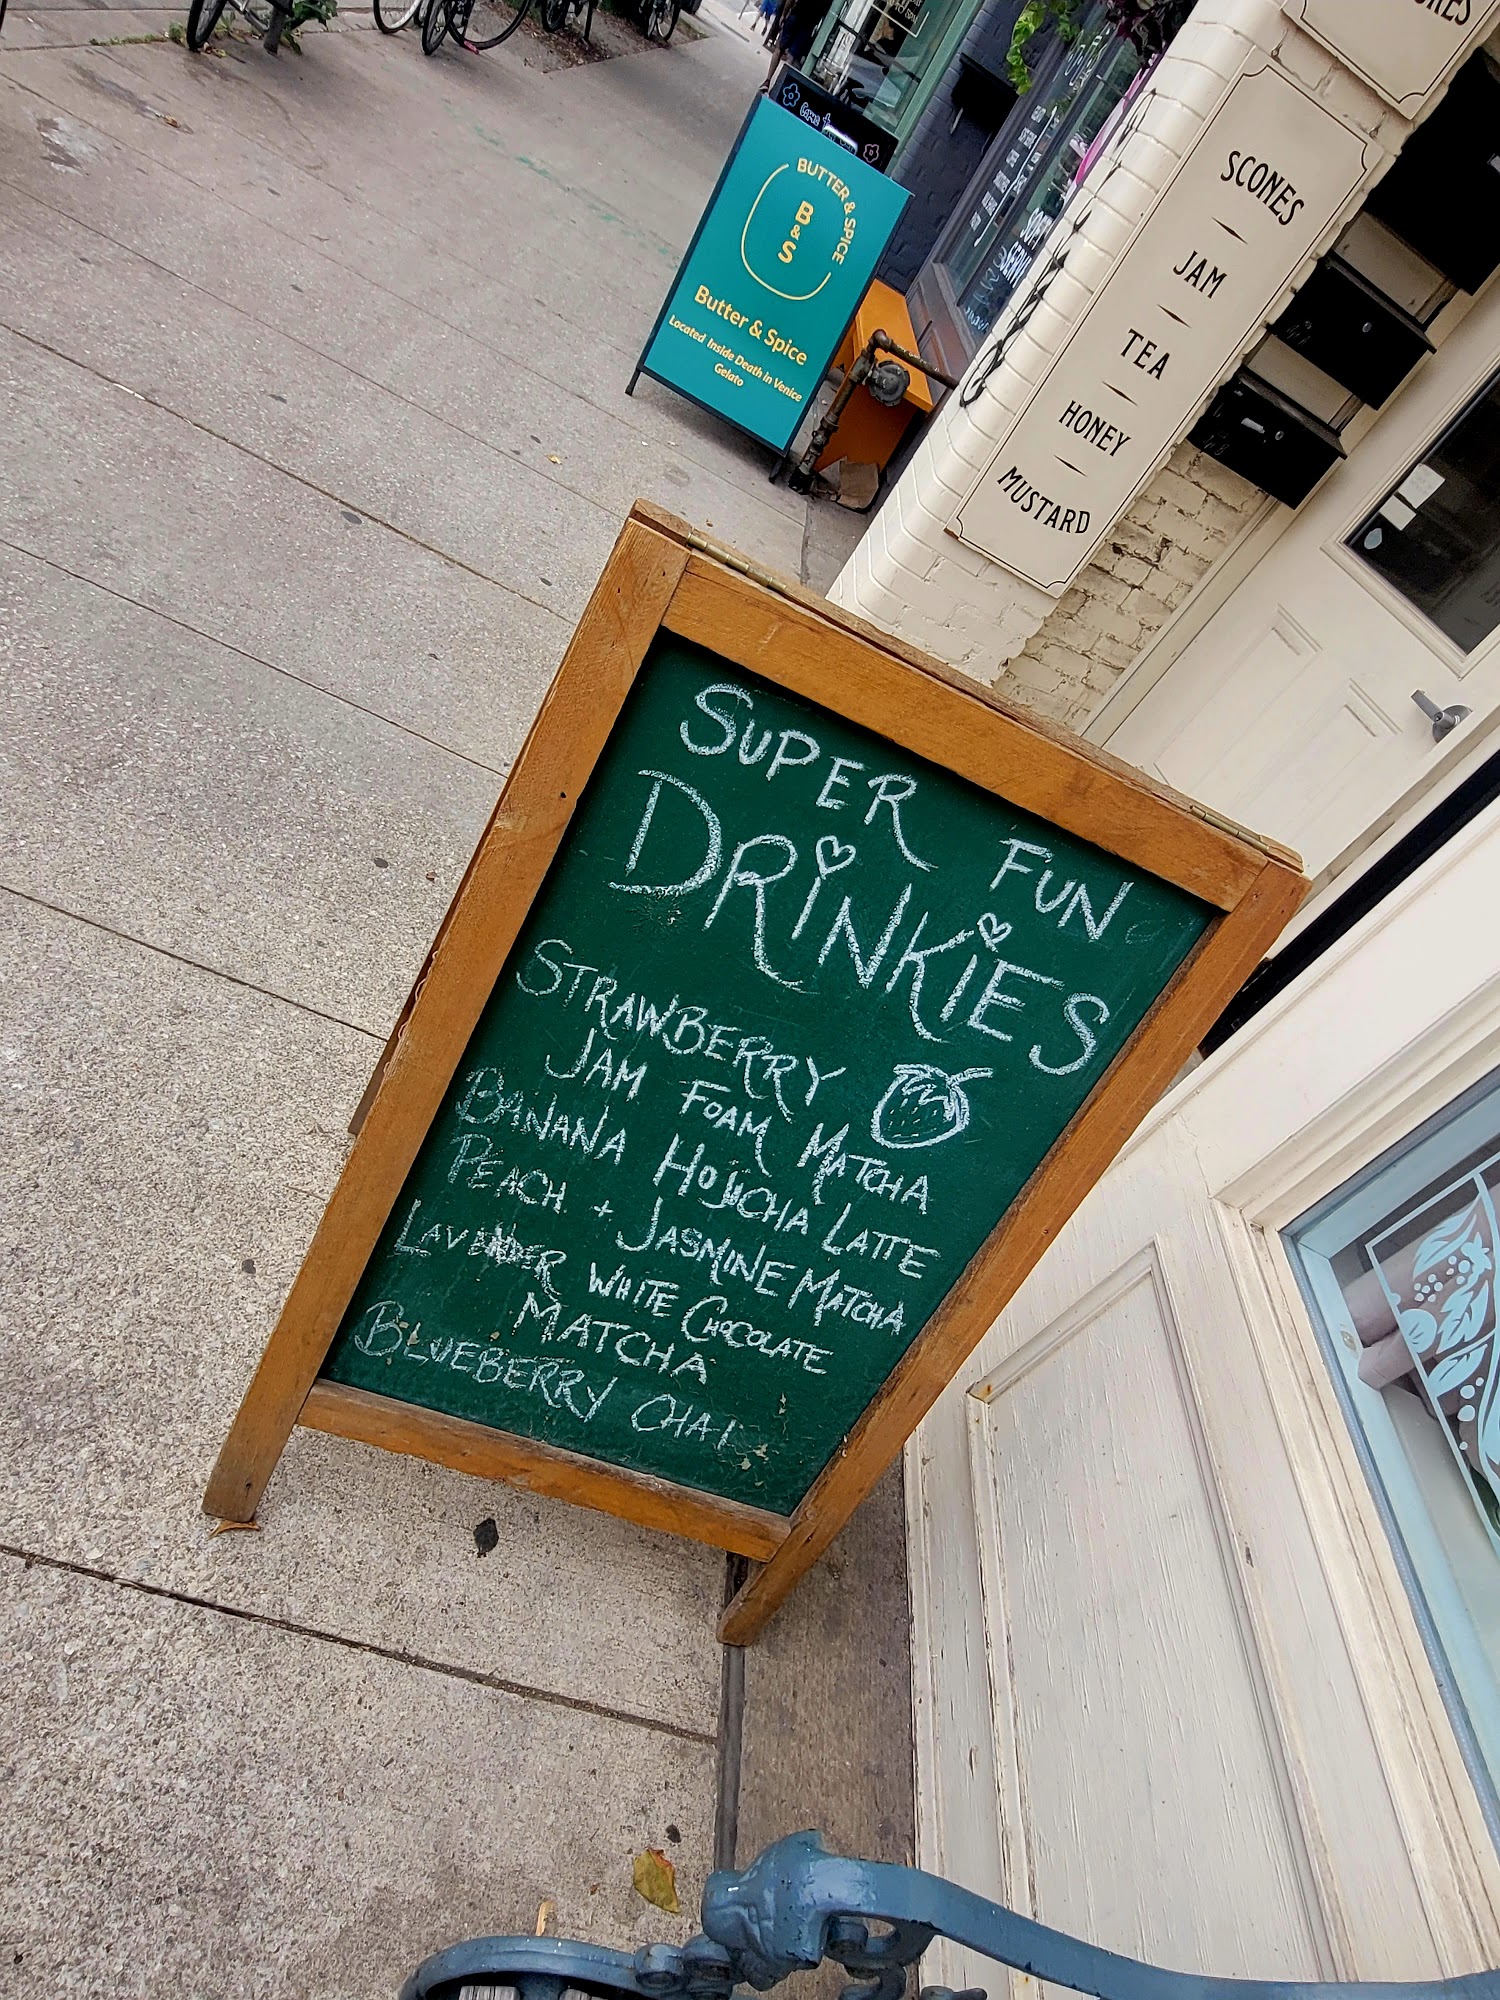 SUPER FUN
DRiNKiES
STRAWBERRY
JAM FOAM MATCHA
BANANA HOJICHA LATTE
PEACH + JASMINE MATCHA
LAVENDER WHITE CHOCOLATE
MATCHA
BLUEBERRY CHAI
BUTTER & SPICE
B
&
S
Butter & Spice
Located Inside Death In Venice
Gelato
SCONES
JAM
TEA
HONEY
MUSTARD
SOFT
SERVE